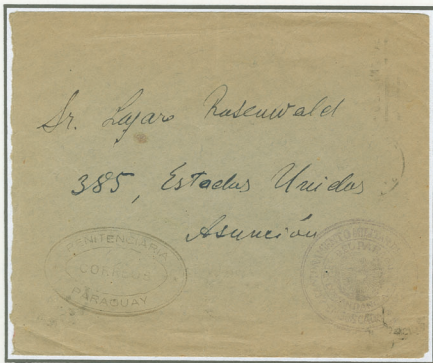 Sr. Lazaro Rosenwald
385, Estados Unidos
Asunción
PENITENCIARIA
CORREOS
PARAGUAY